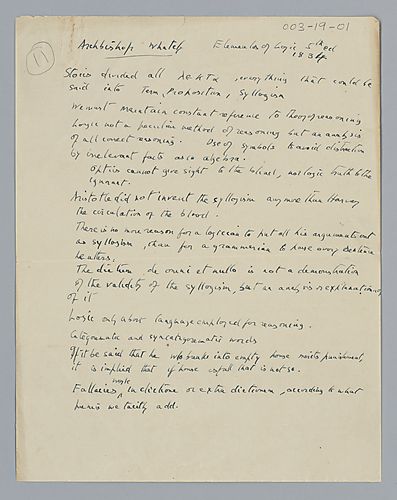 003-19-01
11
Archbishop Whately Elements of Logic 5th ed
1834
Stoics divided all λεκτα, everything that could be
said into Term, Proposition, Syllogism
We must maintain constant reference to theory of reasoning
Logic not a peculiar method of reasoning but an analysis
of all correct reasoning. Use of symbols to avoid distraction
by irrelevant facts as in algebra.
Optics cannot give sight to the blind, nor logic truth to the
ignorant.
Aristotle did not invent the syllogism any more than Harvey
the circulation of the blood.
There is no more reason for a logician to put all his arguments out
as syllogism, than for a grammarian to parse every sentence
he utters.
The dictum, de omni et nullo is not a demonstration
of the validity of the syllogism, but an analysis & explanation
of it
Logic only about language employed for reasoning.
Categorematic and syncategorematic words
If it be said that he who breaks into empty house merits punishment,
it is implied that if house is full that is not so.
Fallacies may be in dictione or extra dictionem, according to what
premis we tacitly add.